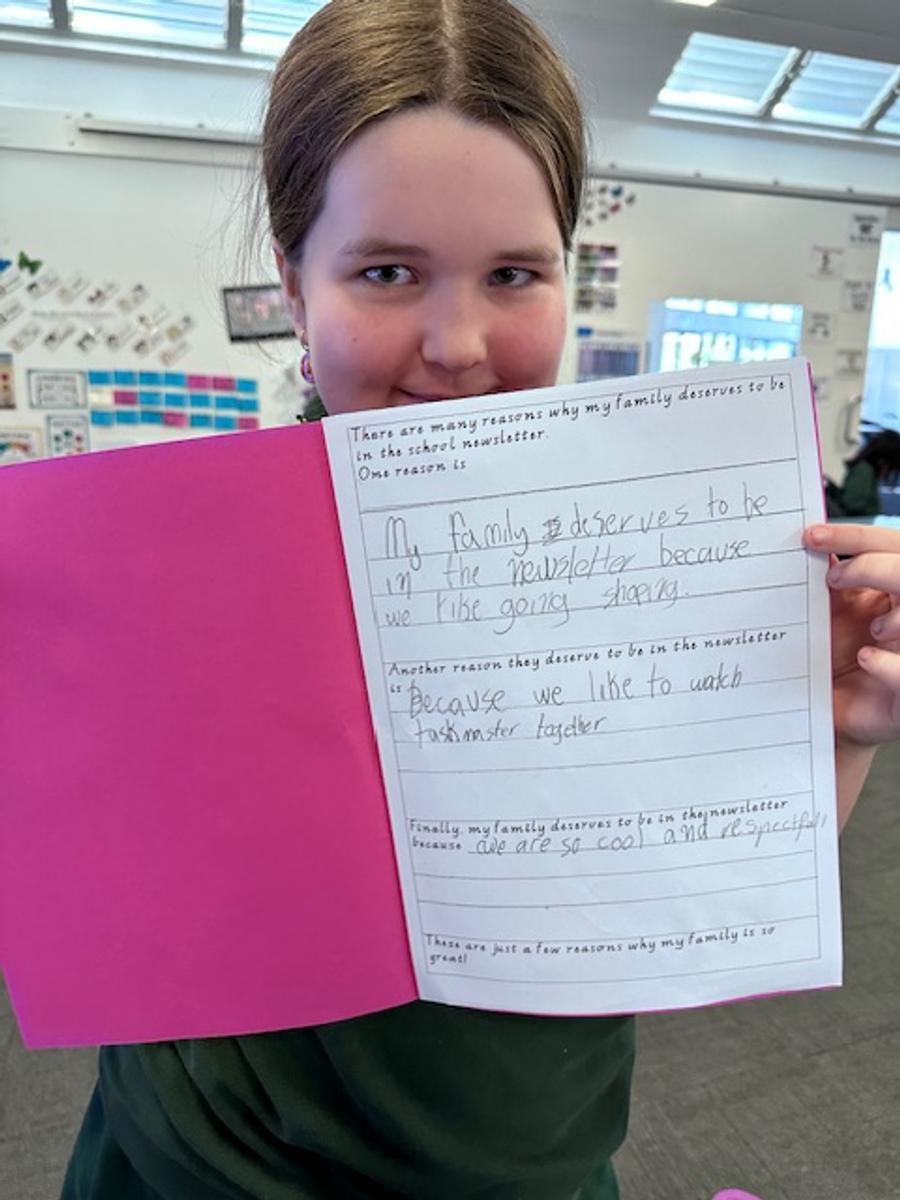 There are many reasons why my family deserves to be
in the school newsletter.
One reason is
My family deserves to be
in the newsletter because
we like going shoping.
Another reason they deserve to be in the newsletter
is Because we like to watch
taskmaster together
Finally, my family deserves to be in the newsletter
because we are so cool and respectful
These are just a few reasons why my family is so
great!